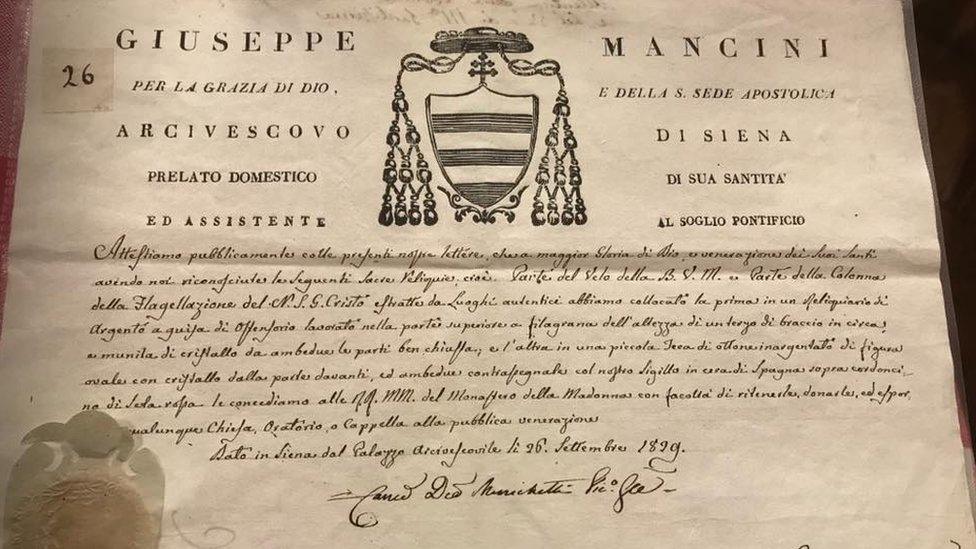 GIUSEPPE MANCINI
26
PER LA GRAZIA DI DIO, E DELLA S. SEDE APOSTOLICA
ARCIVESCOVO DI SIENA
PRELATO DOMESTICO DI SUA SANTITA'
ED ASSISTENTE AL SOGLIO PONTIFICIO
Attestiamo pubblicamente colle presenti nostre lettere, che a maggior Gloria di Dio, e venerazione dei Suoi Santi
avendo noi riconosciute le Seguenti Sacre Reliquie, cioè. Parte del Velo della B. V. M. e Parte della Colonna
della Flagellazione del N. S. G. Cristo estratte da Luoghi autentici abbiamo collocato la prima in un Reliquiario di
Argento a guisa di Ostensorio lavorato nella parte superiore a filagrana dell'altezza di un terzo di braccio in circa,
e munita di cristallo da ambedue le parti ben chiusa, e l'altra in una piccola Teca di ottone inargentato di figura
ovale con cristallo dalla parte davanti, ed ambedue contrassegnate col nostro Sigillo in cera di Spagna sopra cordonci-
no di Seta rossa le concediamo alle MM. del Monastero della Madonna con facoltà di ritenerle, donarle, ed espor
qualunque Chiesa, Oratorio, o Cappella alla pubblica venerazione
Dato in Siena dal Palazzo Arcivescovile li 26. Settembre 1829.